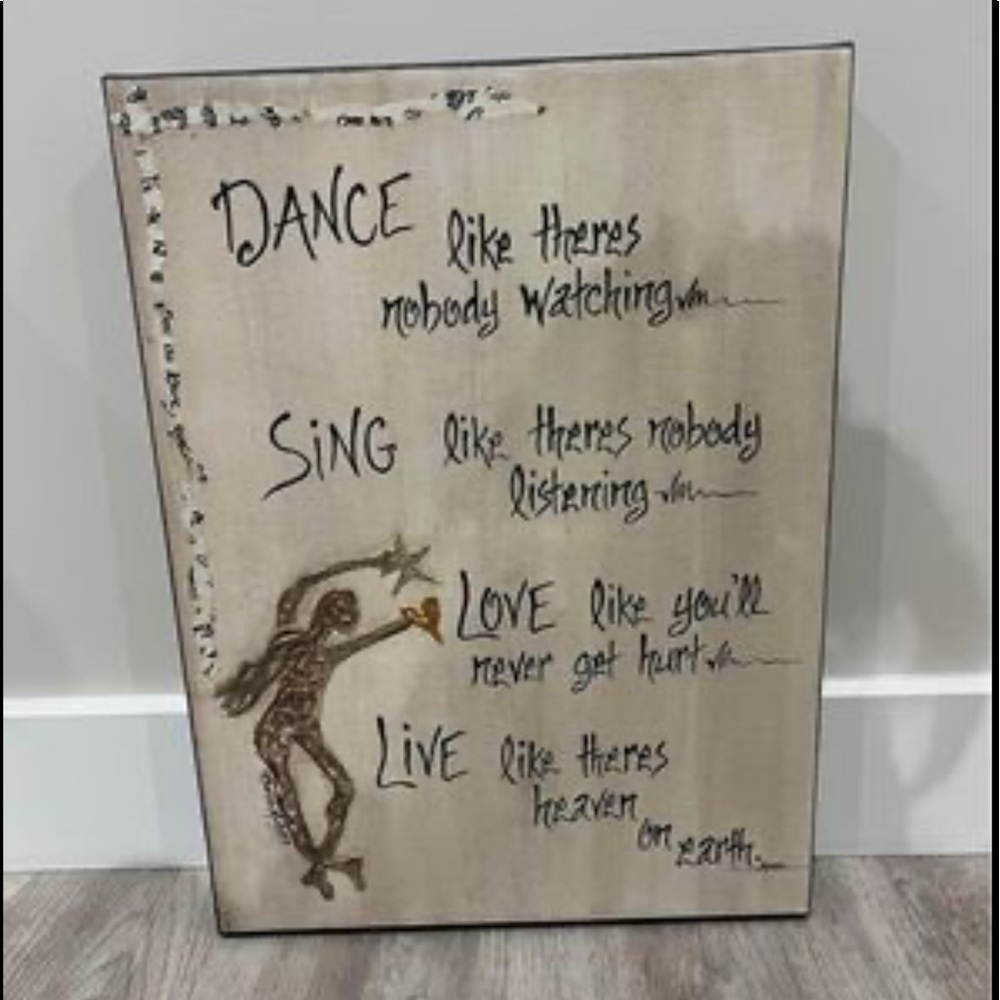 DANCE like theres
nobody watching
SiNG like theres nobody
listening
LOVE like you'll
never get hurt
LiVE like theres
heaven
on
earth.